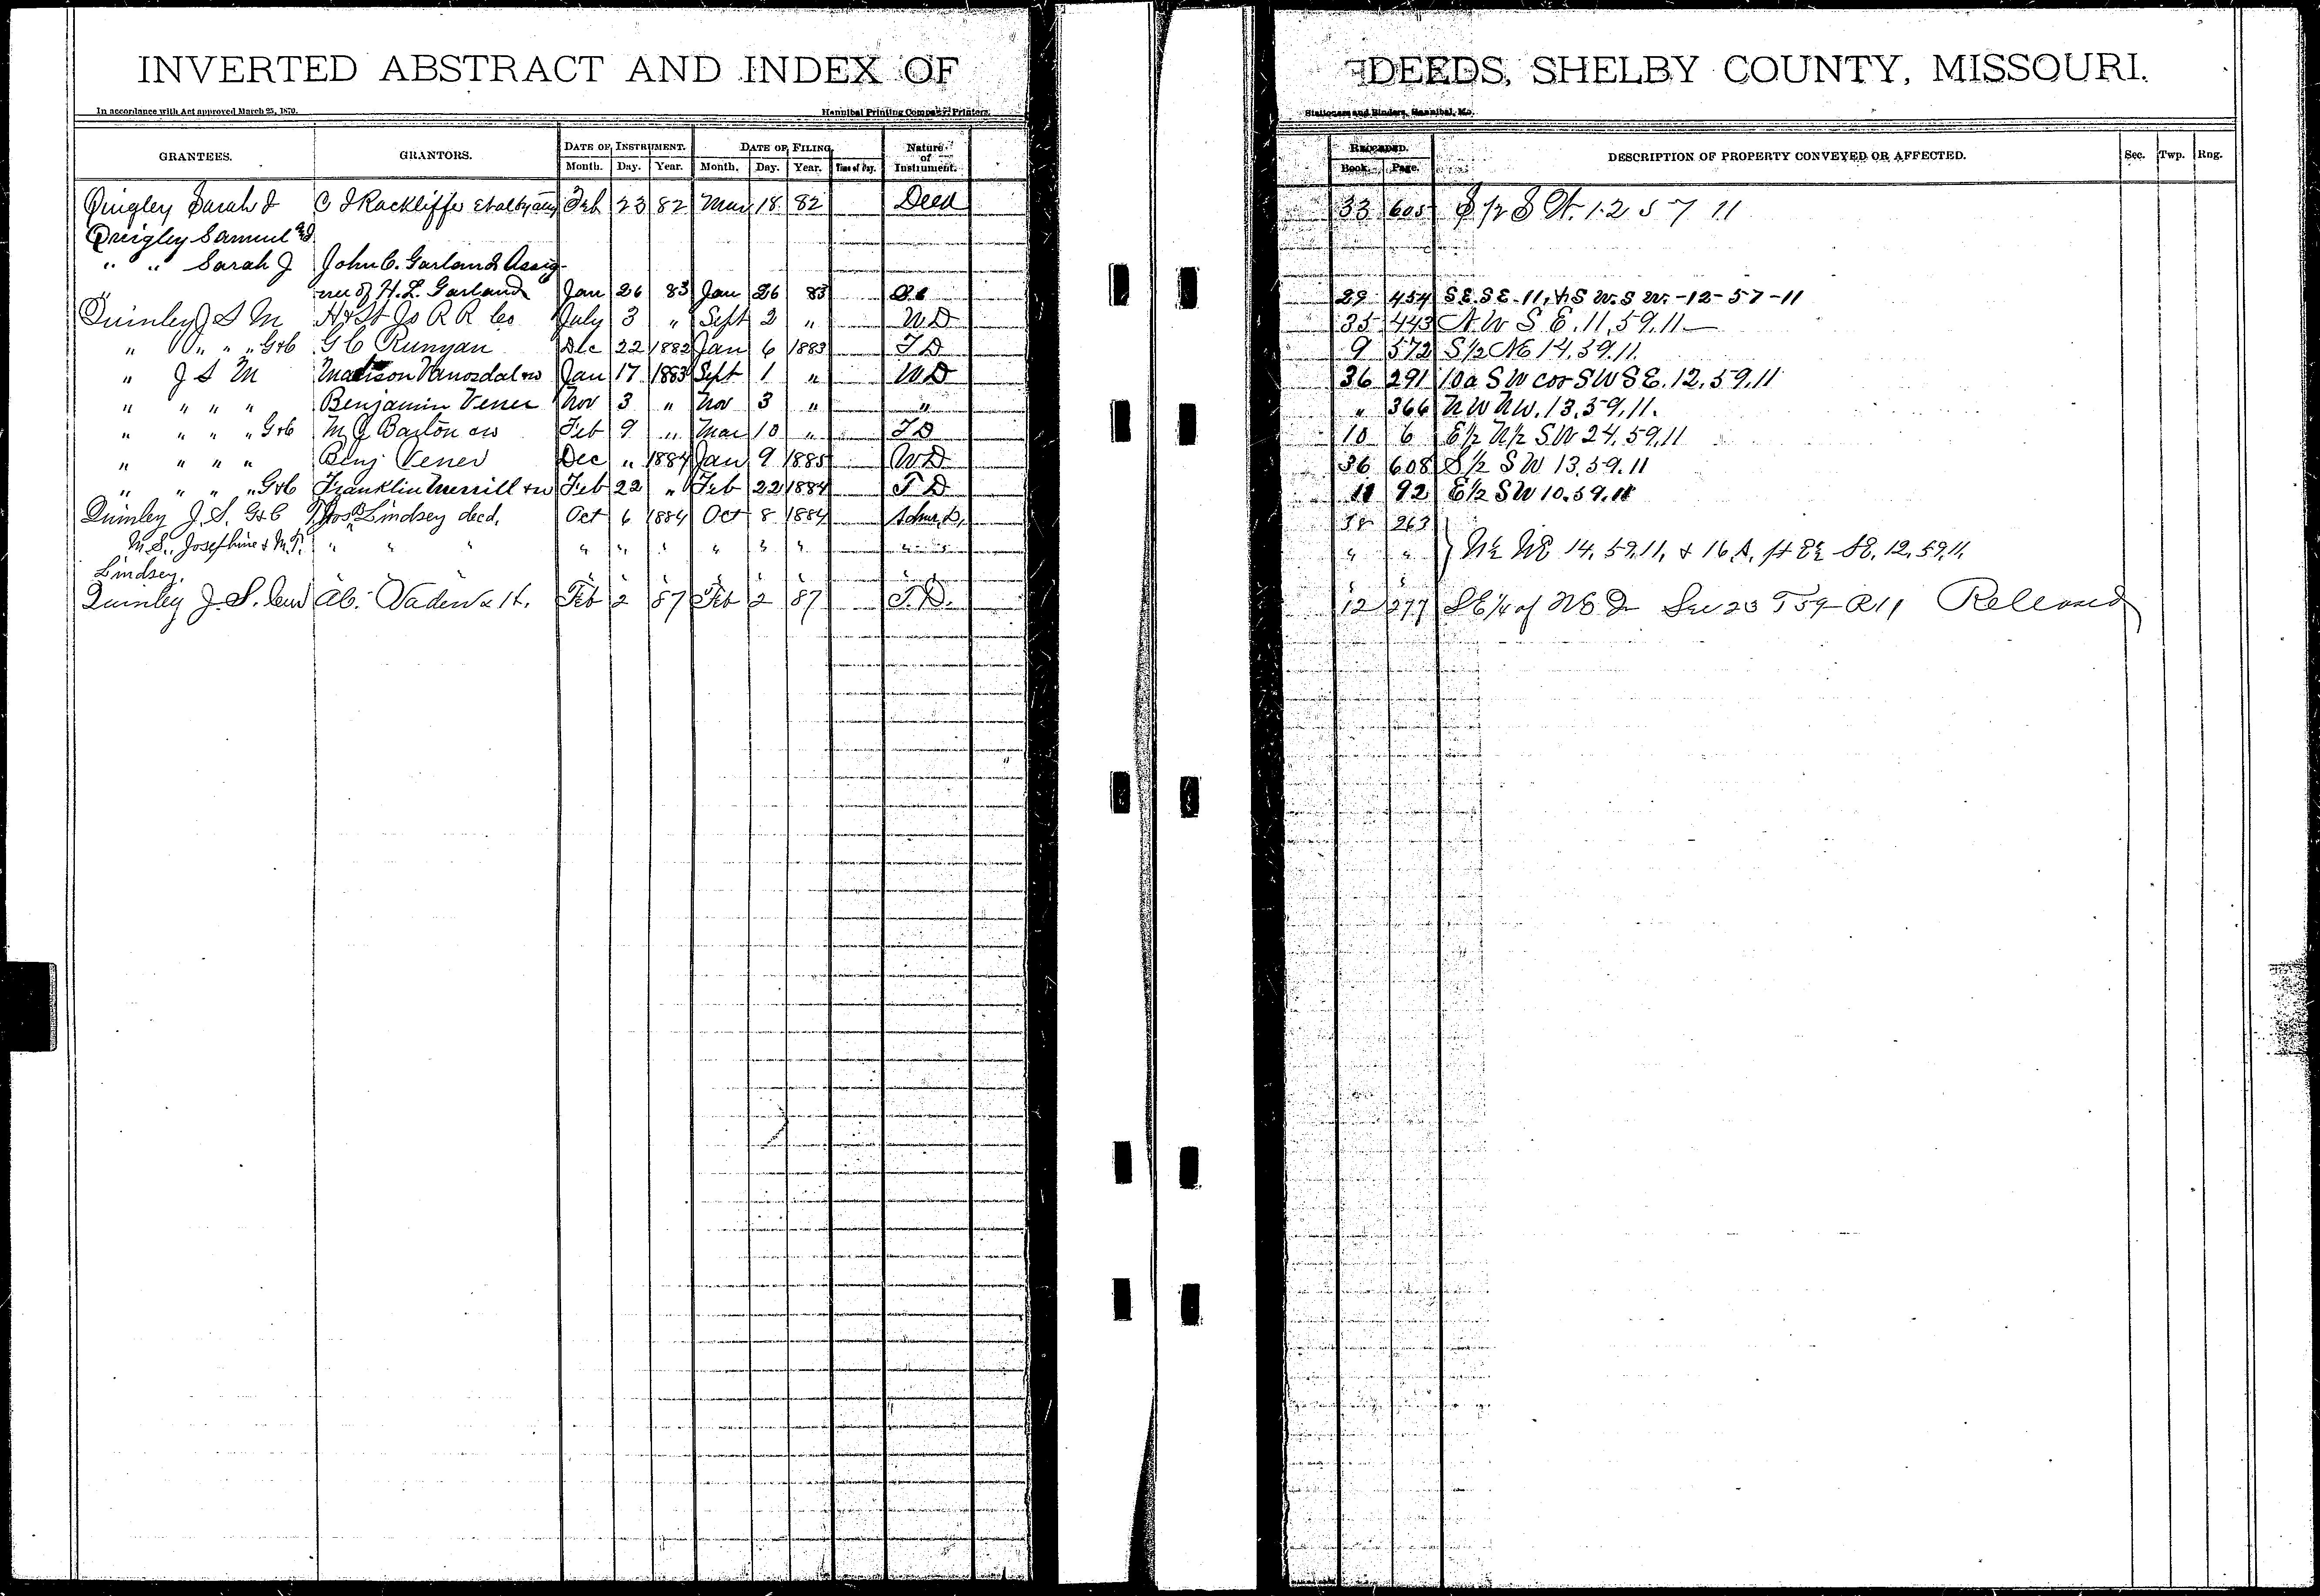 INVERTED ABSTRACT AND INDEX OF DEEDS, SHELBY COUNTY, MISSOURI.
In accordance with Act approved March 25, 1870. Hannibal Printing Company, Printers, Stationers and Binders, Hannibal, Mo.
GRANTEES. GRANTORS. DATE OF INSTRUMENT. DATE OF FILING Nature of Instrument. RECORDED. DESCRIPTION OF PROPERTY CONVEYED OR AFFECTED. Sec. Twp. Rng.
Month. Day. Year. Month. Day. Year. Time of Day. Book. Page.
Quigley Sarah J C J Rackliffe Feb 23 82 Mar 18 82 Deed 33 605 S 1/2 S W. 12 57 11
Quigley Samuel
" " Sarah J John C. Garland Assig-
nee of H. L. Garland Jan 26 83 Jan 26 83 29 454 S.E. S E - 11, & S W. S W. - 12 - 57 - 11
Quinley J S M H & St Jo R R Co July 3 " Sept 2 " W D 35 443 N W S E. 11, 59, 11
" " " " G & C G C Runyan Dec 22 1882 Jan 6 1883 T D 9 572 S 1/2 NE 14. 59. 11.
" J S M Madison Vanosdal & w Jan 17 1883 Sept 1 " W D 36 291 10 a S W cor S W S E. 12, 59, 11
" " " " Benjamin Vener Nov 3 " Nov 3 " " " 366 N W N W. 13, 59, 11.
" " " " G & C M J Barton & w Feb 9 " Mar 10 " T D 10 6 E 1/2 N 1/2 S W 24. 59, 11
" " " " Benj Vener Dec " 1884 Jan 9 1885 W D 36 608 S 1/2 S W 13. 59. 11
" " " " G & C Franklin Merrill & w Feb 22 " Feb 22 1884 T D 11 92 E 1/2 S W 10. 59. 11
Quinley J. S. G & C Lindsey decd, Oct 6 1884 Oct 8 1884 Admr. D, 38 263
M. S., Josephine & M. T. " " " " " " " " " " " " } N 1/2 NE 14, 59, 11, & 16 A, pt E 1/2 SE, 12, 59, 11,
Lindsey.
Quinley J. S. Ab. Vaden & H. Feb 2 87 Feb 2 87 T. D. 12 277 S E 1/4 of N E Qr Sec 23 T 59 R 11 Released